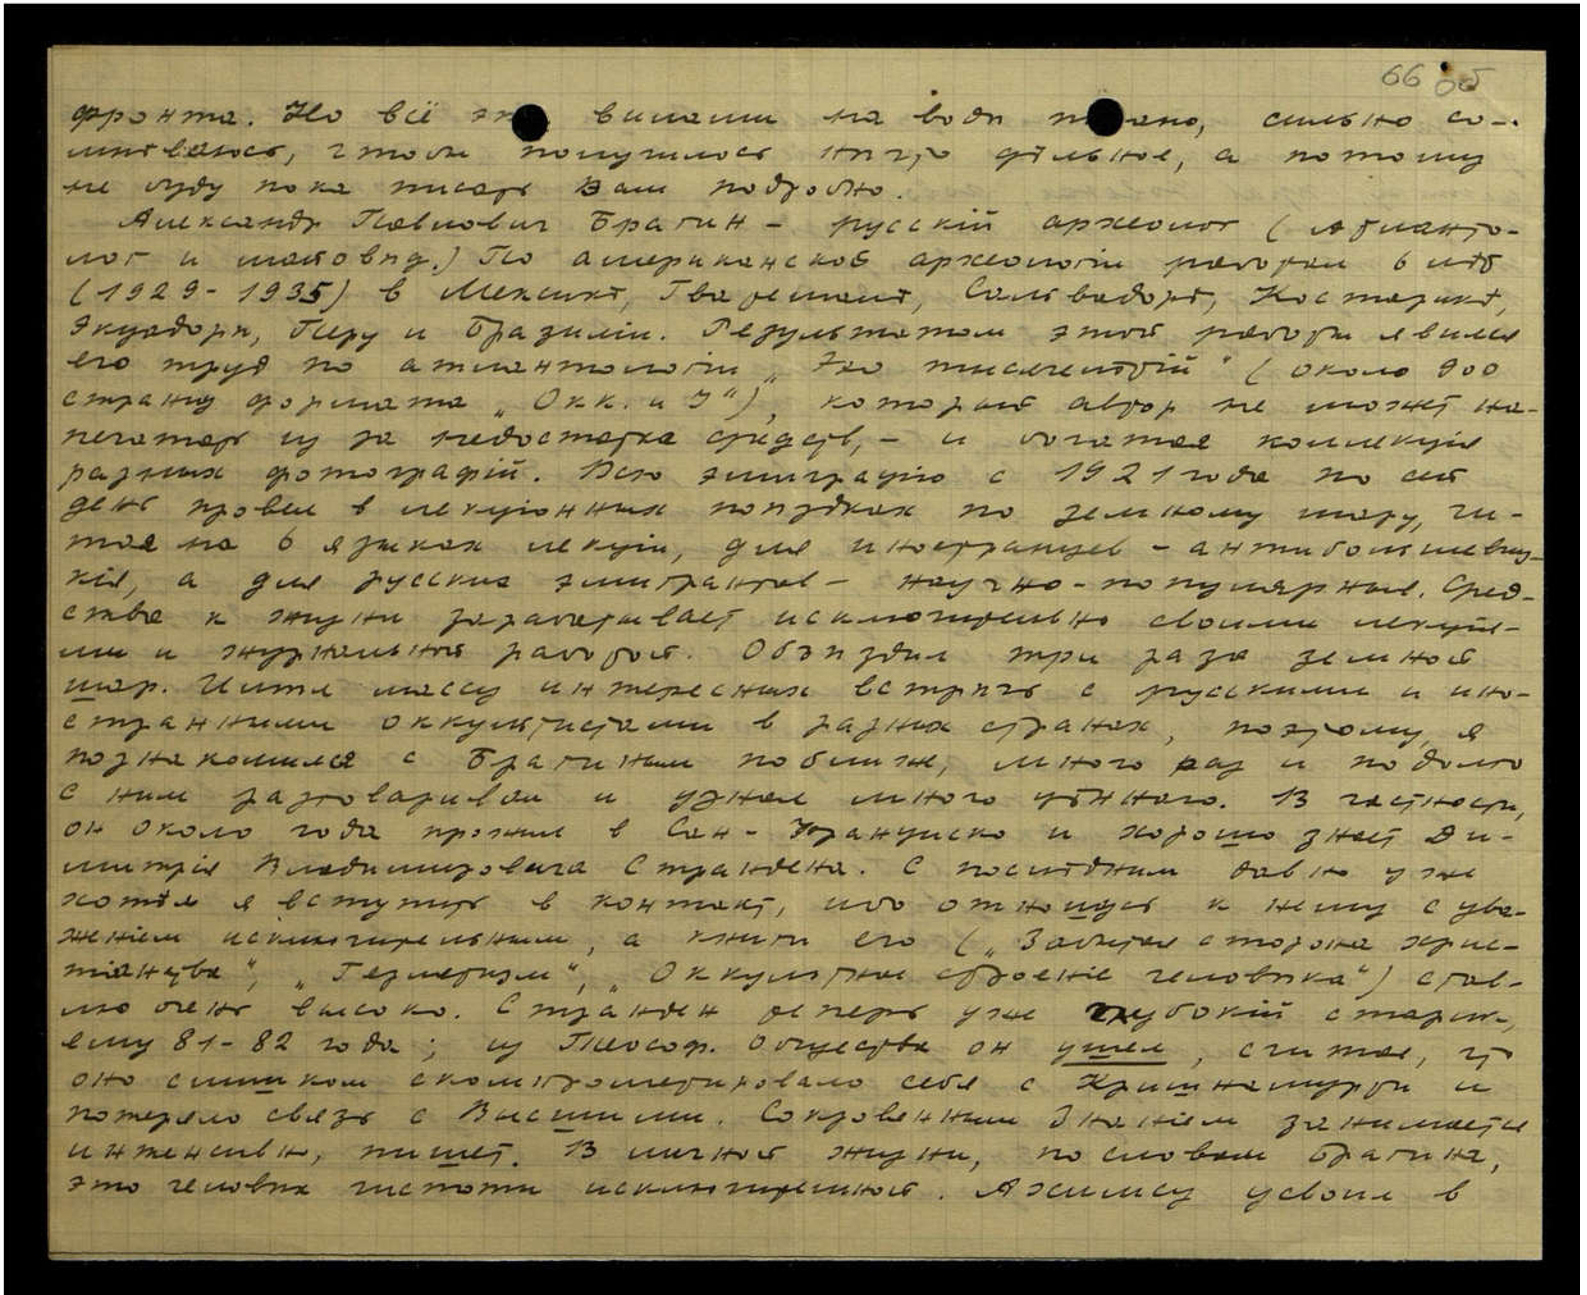 66 об
фронта. Но всё это вилами на воде писано, сильно со-
мнѣваюсь, чтобы получилось нѣчто дѣльное, а потому
не буду пока писать Вам подробно.
Александр Павлович Брагин – русскій археолог (атланто-
лог и маковѣд.) По американской археологіи работал 6 лѣт
(1929-1935) в Мексикѣ, Гватемалѣ, Сальвадорѣ, Костарикѣ,
Экуадорѣ, Перу и Бразиліи. Результатом этой работы явился
его труд по атлантологіи „Эхо тысячелѣтій" (около 900
страниц формата „Окк. и I"), который автор не может на-
печатать из за недостатка средств, – и богатая коллекція
разных фотографій. Всю эмиграцію с 1921 года по сей
день провел в лекціонных поѣздках по земному шару, чи-
тая на 6 языках лекціи, для иностранцев – антибольшевиц-
кія, а для русских эмигрантов – научно-популярные. Сред-
ства к жизни зарабатывает исключительно своими лекція-
ми и журнальной работой. Объѣздил три раза земной
шар. Имѣл массу интересных встрѣч с русскими и ино-
странными оккультистами в разных странах, поэтому я
познакомился с Брагиным поближе, много раз и подолго
с ним разговаривал и узнал много цѣннаго. В частности,
он около года прожил в Сан-Франциско и хорошо знает Ди-
митрія Владимировича Страндена. С послѣдним давно уже
хотѣл я вступить в контакт, ибо отношусь к нему с ува-
женіем исключительным, а книги его („Забытая сторона хрис-
тіанства", „Герметизм", „Оккультное строеніе человѣка") став-
лю очень высоко. Странден теперь уже глубокій старик,
ему 81-82 года; из Теософ. Общества он ушел, считая, что
оно слишком скомпрометировало себя с Кришнамурти и
потеряло связь с Высшими. Сокровенным Знаніем занимается
интенсивно, пишет. В личной жизни, по словам Брагина,
это человѣк чистоты исключительной. Ахимсу усвоил в